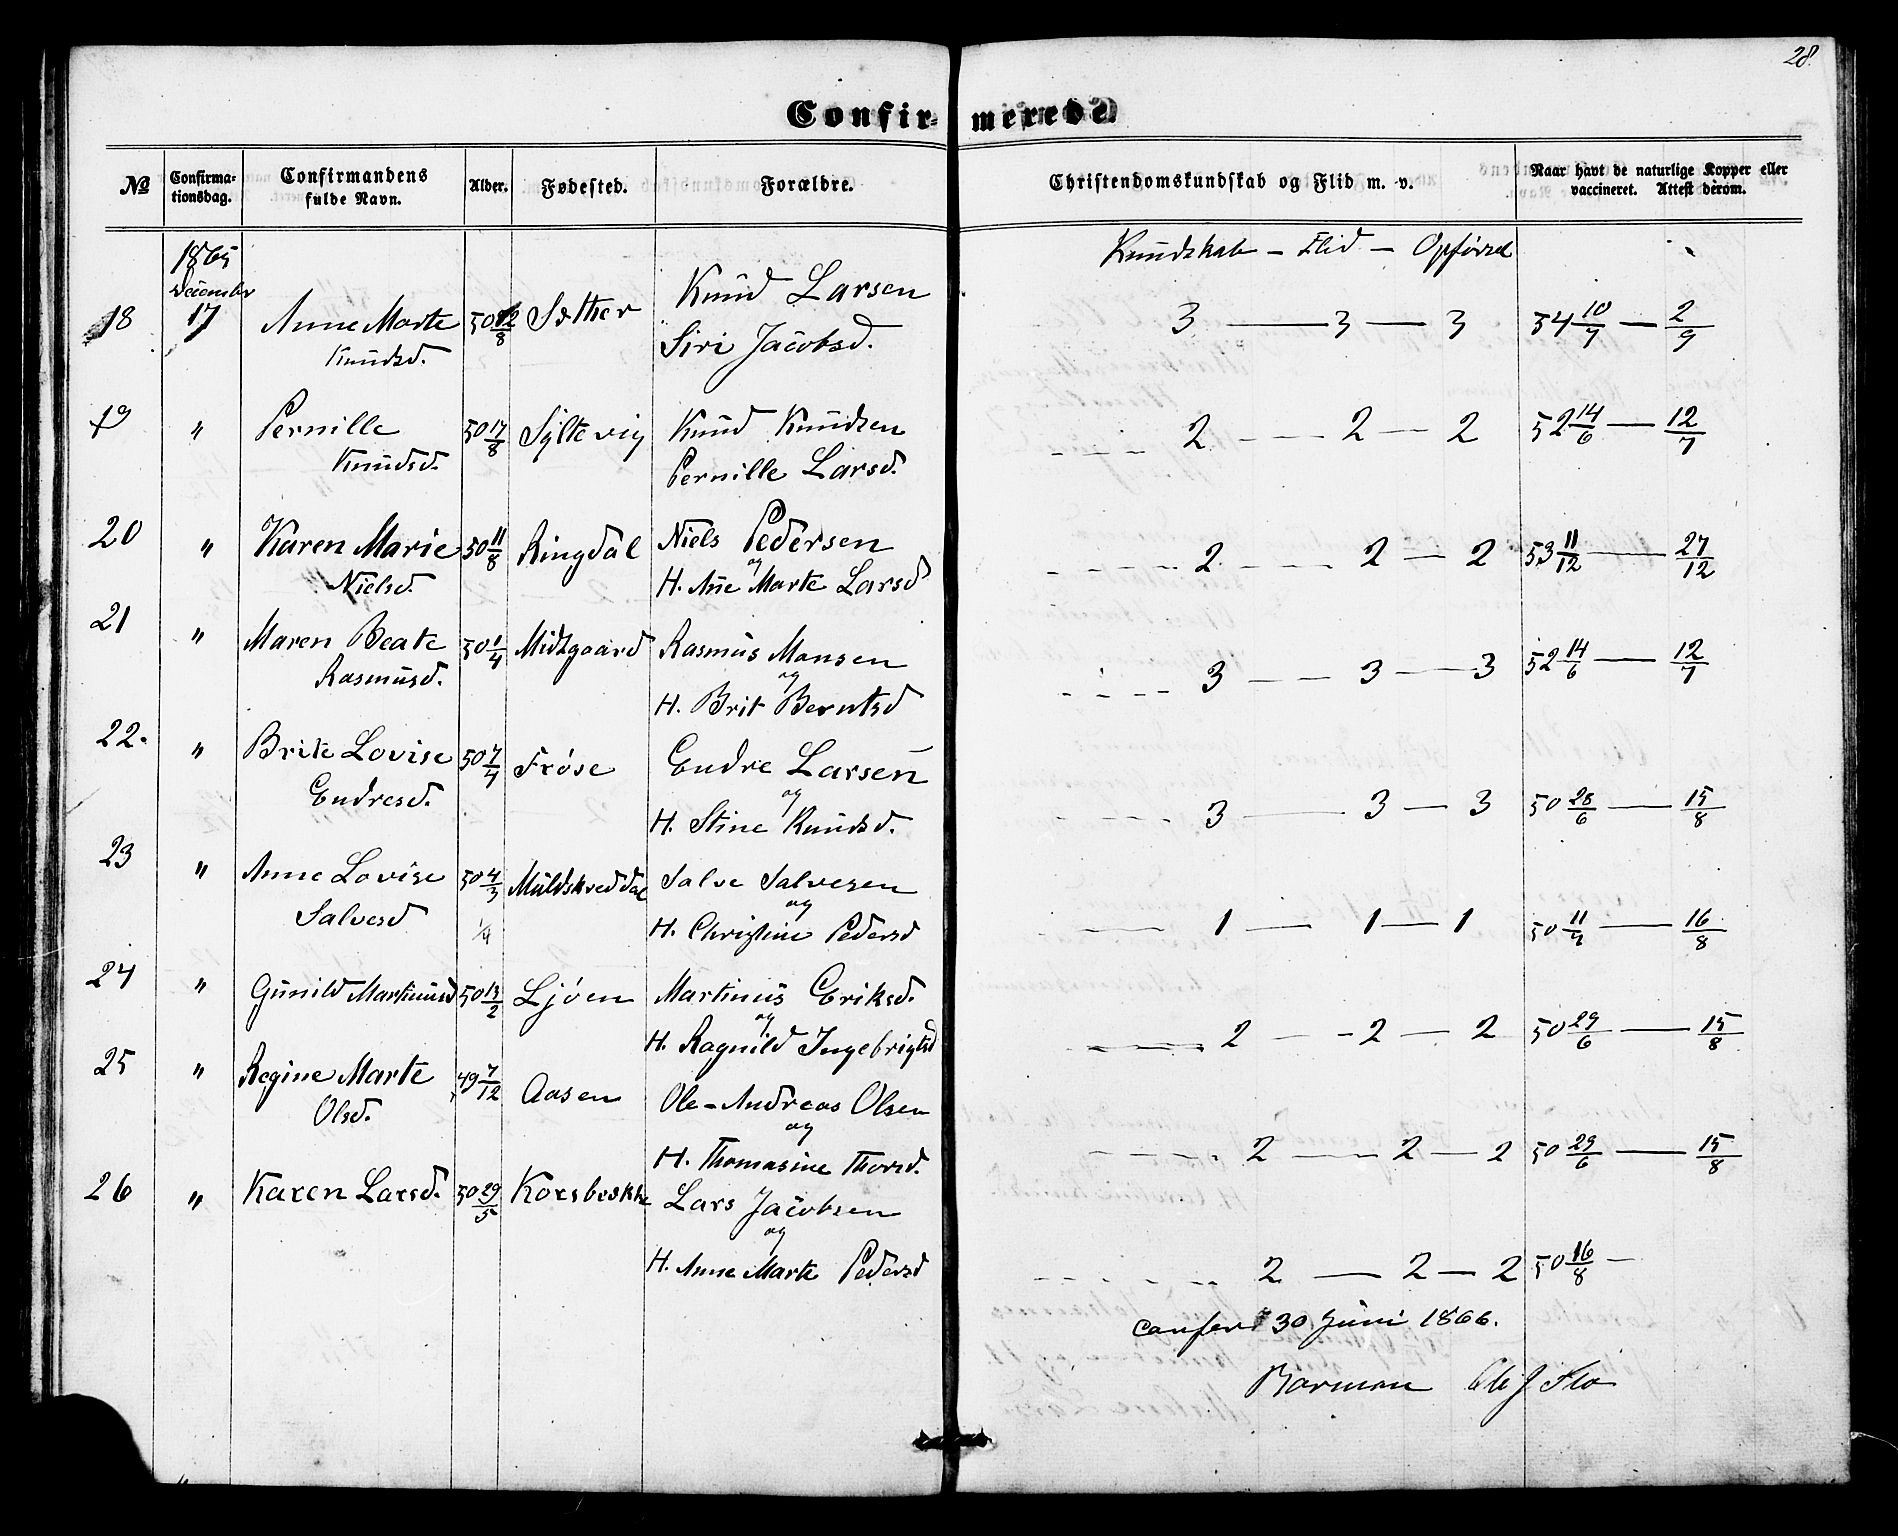 28.
Confir- merede.
No Confirma-tionsdag. Confirmandens fulde Navn. Alder. Fødested. Forældre. Christendomskundskab og Flid m. v. Naar havt de naturlige Kopper eller vaccineret. Attest derom.
1865 Kundskab - Flid - Opførsel
December
18 17 Anne Marte 50 12/8 Sæther Knud Larsen 3 — 3 — 3 54 10/7 — 2/9
Knudsd. Siri Jacobsd.
19 " Pernille 50 17/8 Syltevig Knud Knudsen 2 - - - 2 — 2 52 14/6 — 12/7
Knudsd. Pernille Larsd.
20 " Karen Marie 50 11/8 Ringdal Niels Pedersen 2 - - - 2 — 2 53 11/12 — 27/12
og
Nielsd. H. Ane Marte Larsd
21 " Maren Beate 50 1/4 Midtgaard Rasmus Monsen 3 - - - 3 — 3 52 14/6 — 12/7
og
Rasmusd. H. Brit Berntsd
22. " Brite Lovise 50 7/7 Frøse Endre Larsen 3 — 3 — 3 50 28/6 — 15/8
og
Endresd. H. Stine Knudsd.
23 " Anne Lovise 50 4/3 Muldskreddal Salve Salvesen 1 — 1 — 1 50 11/7 — 16/8
og
Salvesd 1/4 H. Christine Pedersd
24 " Gunild Martinusd 50 13/2 Ljøen Martinus Eriksd. 2 — 2 — 2 50 29/6 — 15/8
og
H. Ragnild Ingebrigtsd
25 " Regine Marte 49 7/12 Aasen Ole-Andreas Olsen 2 — 2 — 2 50 29/6 — 15/8
og
Olsd. H. Thomasine Thorsd.
26 " Karen Larsd. 50 29/5 Korsbrekke Lars Jacobsen 2 — 2 — 2 50 16/8 —
og
H. Anne Marte Pedersd
30 Juni 1866.
Barman Ole J Flo